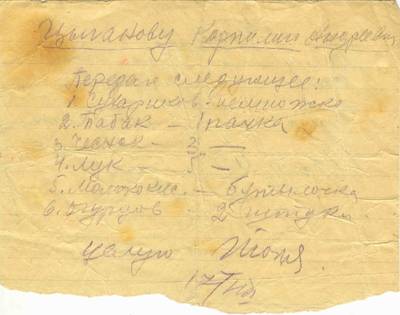 Цыганову Корнилию Андреевичу
Передам следующее:
1. Сухариков - немножко
2. Табак - 1 пачка
3. Чеснок - 2 —
4. Лук - 5 —
5. Молокыс. - бутылочка
6. Огурцов - 2 штуки.
целую Тоня.
17/VII